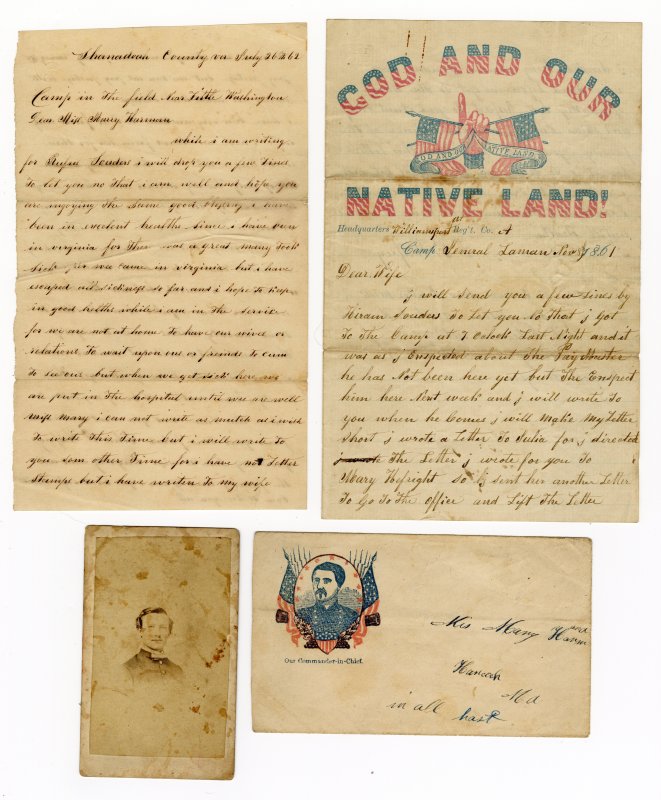 Shanadoah County va July 26th 62
Camp in The field Near Little Washington
Dear Miss Mary Harmon
while i am writing
for Hiram Souders i will drop you a few lines
To let you no That i am well and hope you
are injoying The Same good blessing i have
been in excelent health Since i have ben
in virginia for Ther was a great many Took
Sick we came in virginia but i have
escaped all Sickness So far and i hope To keep
in good helths while i am in The Servis
for we are not at home To have our wives or
relations To wait upon ous or freinds To cum
To see ous but when we get Sick here we
are put in The hospital until we are well
Mary i can not write as mutch as i wish
To write This Time but i will write To
you som other Time for i have not Letter
Stamps but i have wreten To my wife
GOD AND OUR
GOD AND OUR NATIVE LAND
NATIVE LAND!
Headquarters Williamsport Reg't. Co. A
Camp General Laman Nov 1861
Dear Wife
j will Send you a few Lines by
Hiram Souders To Let you no That j Got
To The Camp at 7 Oclock Last Night and it
was as j Enspected about The Pay Master
he has Not been here yet but The Enspect
him here Next weak and j will write To
you when he Comes j will make My Letter
Short j wrote a Letter To Julia for j directed
j wrote The Letter j wrote for you To
Mary Hefright So j Sent her another Letter
To Go To The Office and Lift The Letter
Our Commander-in-Chief.
Mis Mary
Hancock
Md
in all hast